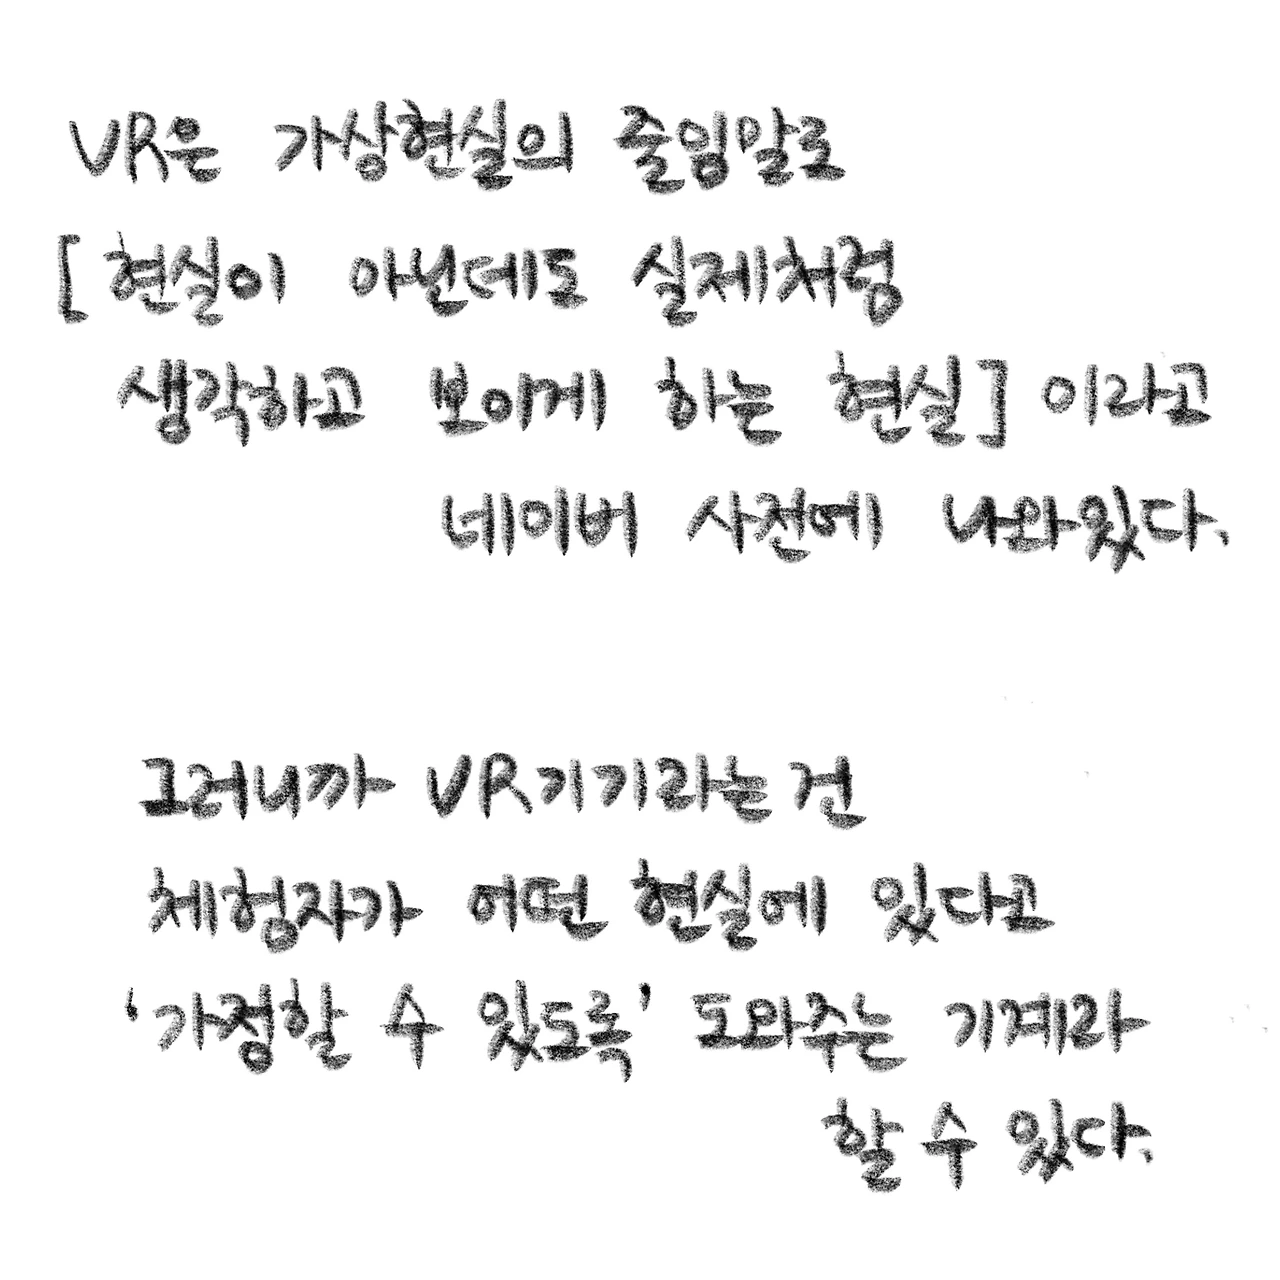 VR은 가상현실의 줄임말로
[현실이 아닌데도 실제처럼
생각하고 보이게 하는 현실] 이라고
네이버 사전에 나와있다.
그러니까 VR기기라는 건
체험자가 어떤 현실에 있다고
'가정할 수 있도록' 도와주는 기계라
할 수 있다.